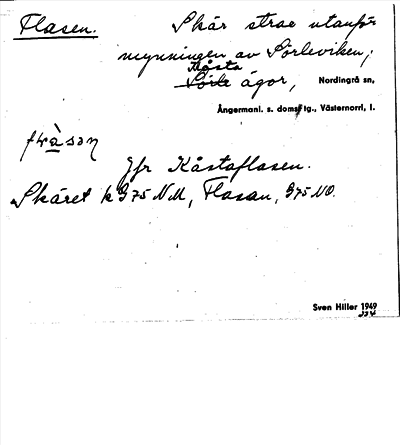 Flasen. Skär strax utanför
mynningen av Sörleviken;
Måsta
Sörle ägor, Nordingrå sn,
Ångermanl. s. doms tg., Västernorrl. l.
Jfr Kåstaflasen.
Skäret k G75 NM, Flasan, G75 NO.
Sven Hiller 1949